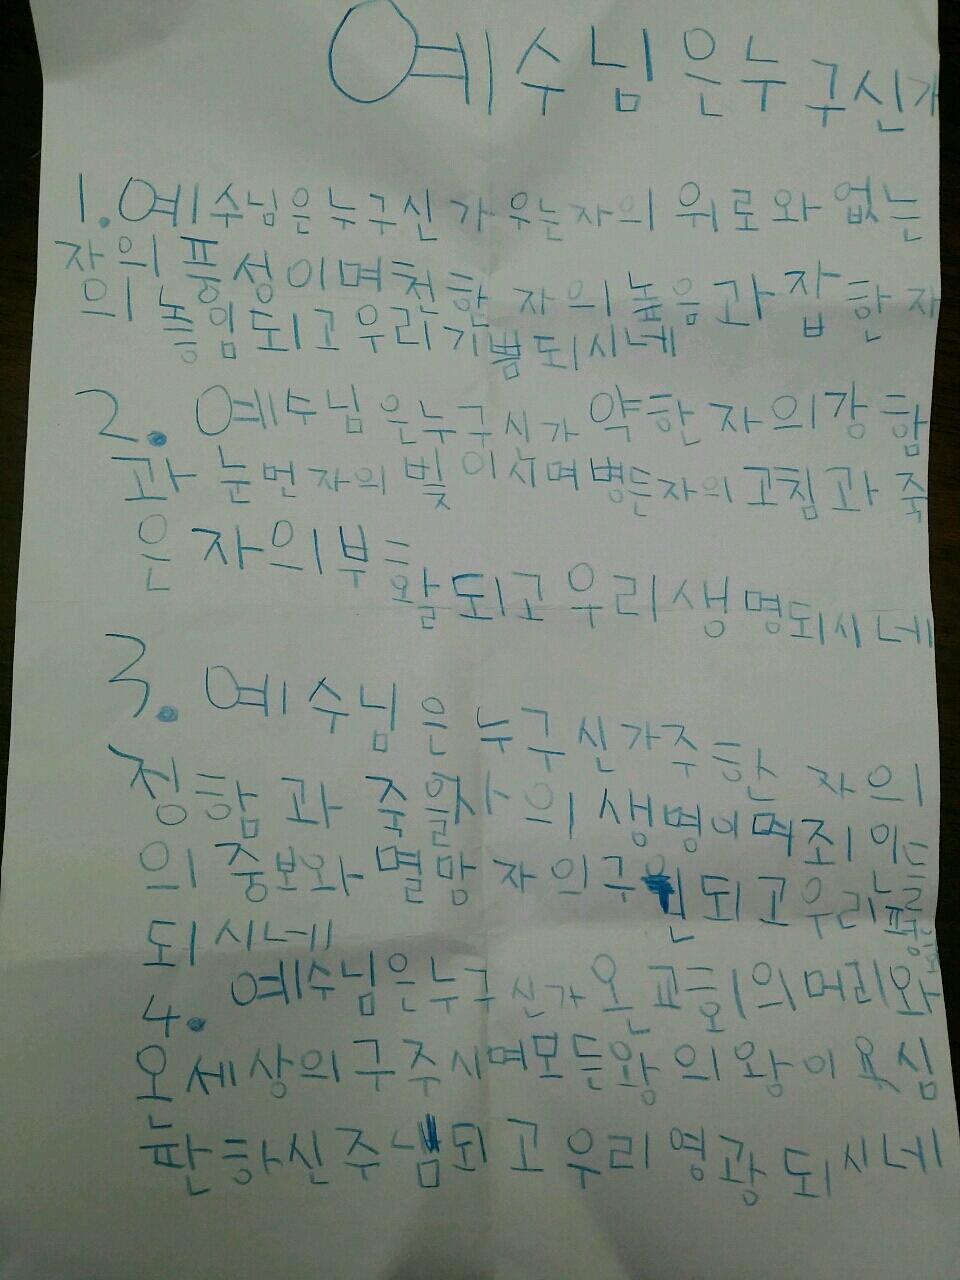 예수님은누구신가
1.예수님은누구신가우는자의 위로와없는
자의 풍성이며천한 자의높음과잡한 자
의 놓임되고우리기쁨되시네
2. 예수님은누구신가약한자의강함
과 눈먼자의 빛이시며병든자의고침과죽
은 자의부활되고우리생명되시네
3. 예수님은 누구신가추한 자의
정함과 죽을자의생명이며죄인들
의 중보와멸망자의구원되고우리
되시네
4. 예수님은누구신가온교회의머리와
온세상의구주시며모든왕의왕이요심
판하신주님되고우리영광되시네